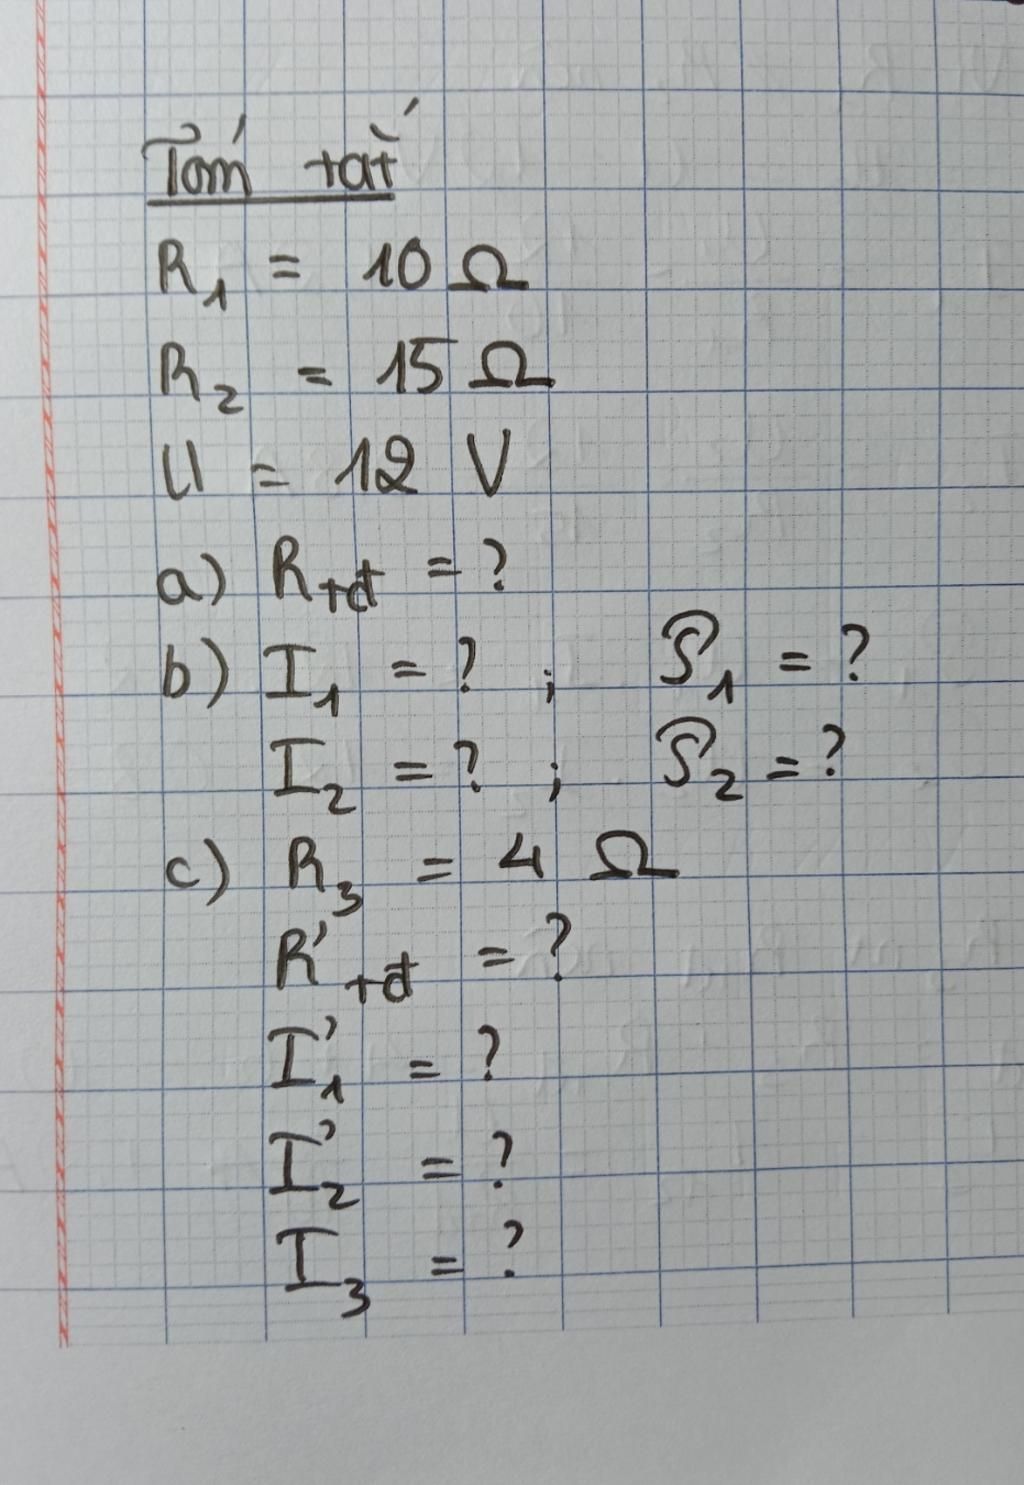 Tóm tắt
R₁ = 10 Ω
R₂ = 15 Ω
U = 12 V
a) Rtđ = ?
b) I₁ = ? ; P₁ = ?
I₂ = ? ; P₂ = ?
c) R₃ = 4 Ω
R'tđ = ?
I'₁ = ?
I'₂ = ?
I₃ = ?